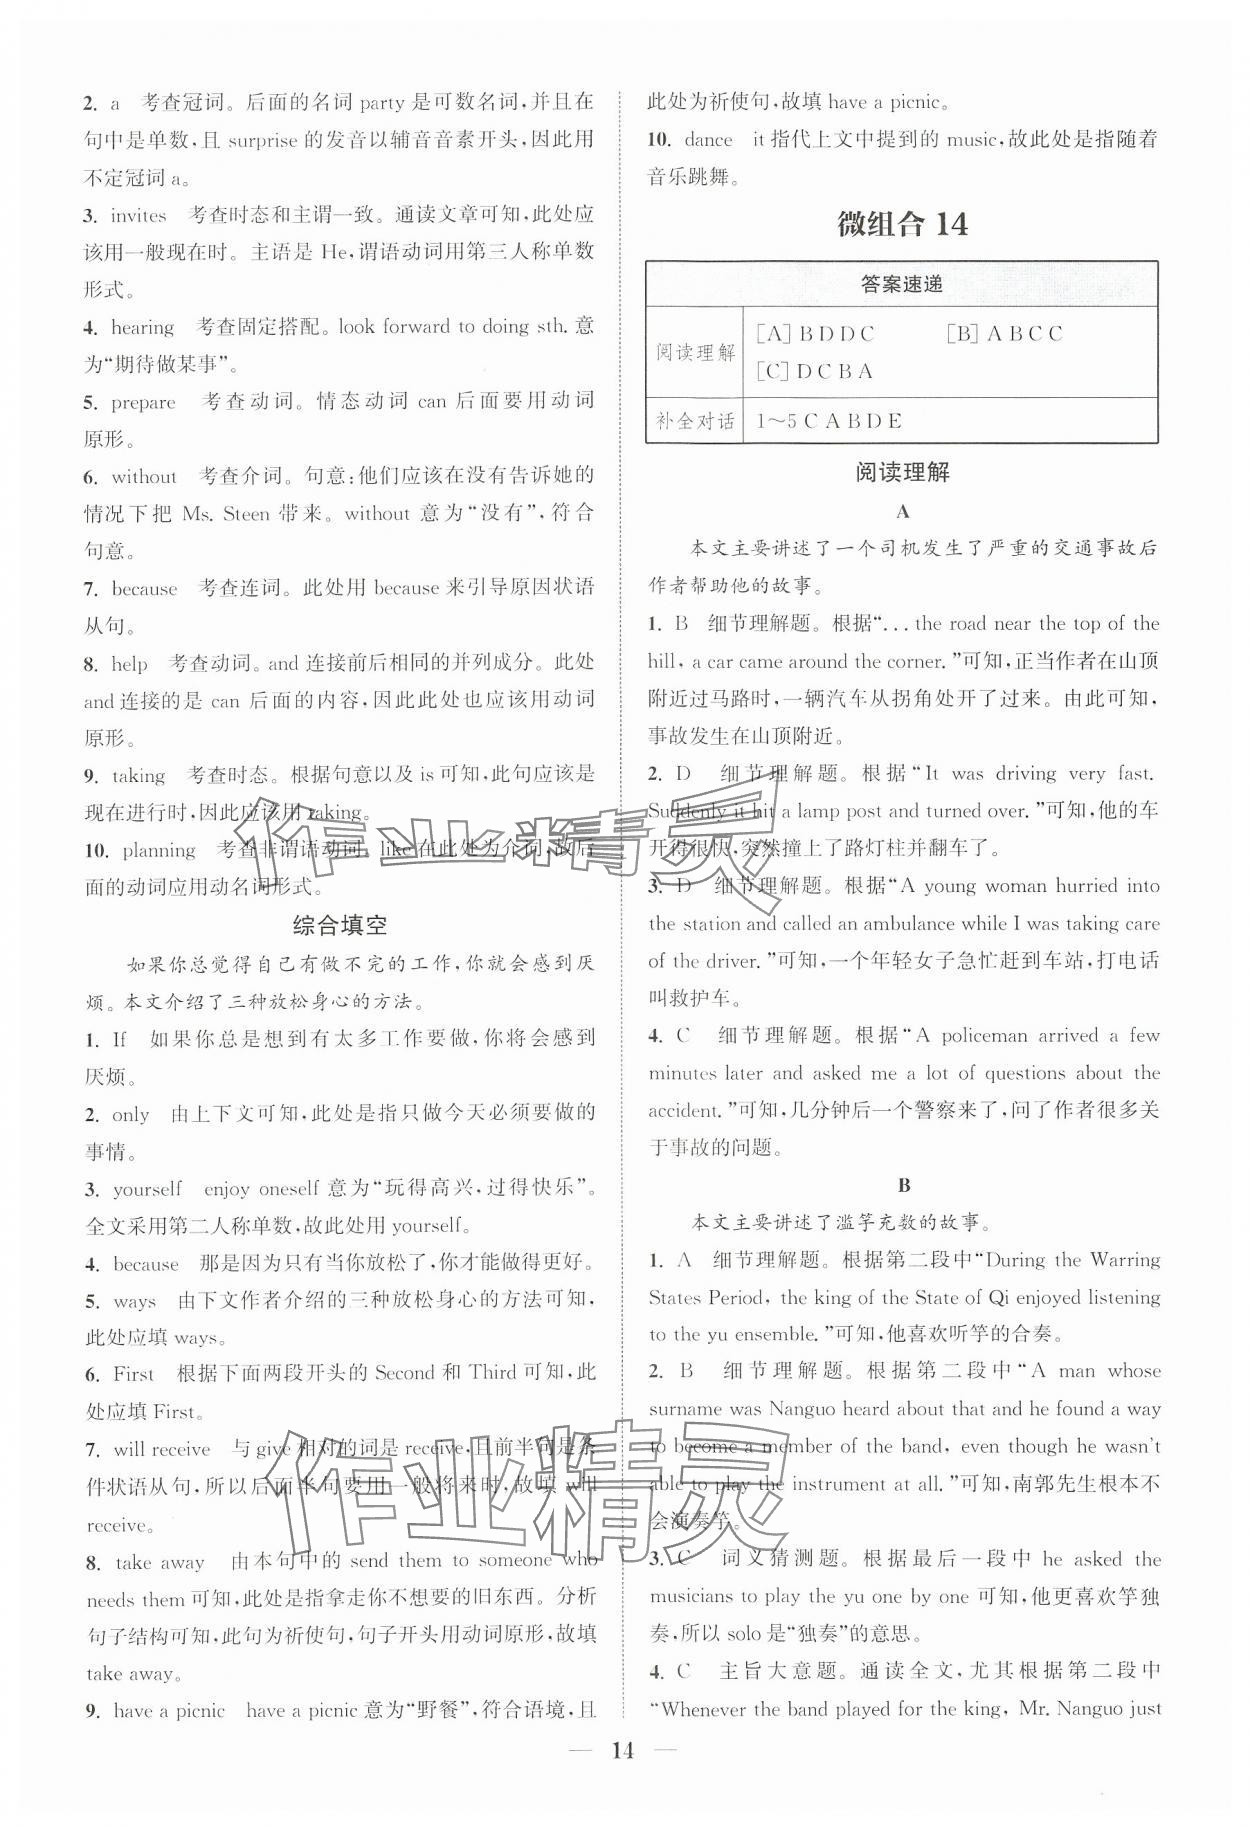 2. a　考查冠词。后面的名词 party 是可数名词,并且在
句中是单数,且 surprise 的发音以辅音音素开头,因此用
不定冠词 a。
3. invites　考查时态和主谓一致。通读文章可知,此处应
该用一般现在时。主语是 He,谓语动词用第三人称单数
形式。
4. hearing　考查固定搭配。look forward to doing sth. 意
为“期待做某事”。
5. prepare　考查动词。情态动词 can 后面要用动词
原形。
6. without　考查介词。句意:他们应该在没有告诉她的
情况下把 Ms. Steen 带来。without 意为“没有”,符合
句意。
7. because　考查连词。此处用 because 来引导原因状语
从句。
8. help　考查动词。and 连接前后相同的并列成分。此处
and 连接的是 can 后面的内容,因此此处也应该用动词
原形。
9. taking　考查时态。根据句意以及 is 可知,此句应该是
现在进行时,因此应该用 taking。
10. planning　考查非谓语动词。like 在此处为介词,故后
面的动词应用动名词形式。
综合填空
如果你总觉得自己有做不完的工作,你就会感到厌
烦。本文介绍了三种放松身心的方法。
1. If　如果你总是想到有太多工作要做,你将会感到
厌烦。
2. only　由上下文可知,此处是指只做今天必须要做的
事情。
3. yourself　enjoy oneself 意为“玩得高兴,过得快乐”。
全文采用第二人称单数,故此处用 yourself。
4. because　那是因为只有当你放松了,你才能做得更好。
5. ways　由下文作者介绍的三种放松身心的方法可知,
此处应填 ways。
6. First　根据下面两段开头的 Second 和 Third 可知,此
处应填 First。
7. will receive　与 give 相对的词是 receive,且前半句是条
件状语从句,所以后面半句要用一般将来时,故填 will
receive。
8. take away　由本句中的 send them to someone who
needs them 可知,此处是指拿走你不想要的旧东西。分析
句子结构可知,此句为祈使句,句子开头用动词原形,故填
take away。
9. have a picnic　have a picnic 意为“野餐”,符合语境,且
此处为祈使句,故填 have a picnic。
10. dance　it 指代上文中提到的 music,故此处是指随着
音乐跳舞。
微组合 14
答案速递
阅读理解　[A] B D D C　[B] A B C C
[C] D C B A
补全对话　1～5 C A B D E
阅读理解
A
本文主要讲述了一个司机发生了严重的交通事故后
作者帮助他的故事。
1. B　细节理解题。根据“... the road near the top of the
hill, a car came around the corner.”可知,正当作者在山顶
附近过马路时,一辆汽车从拐角处开了过来。由此可知,
事故发生在山顶附近。
2. D　细节理解题。根据“It was driving very fast.
Suddenly it hit a lamp post and turned over.”可知,他的车
开得很快,突然撞上了路灯柱并翻车了。
3. D　细节理解题。根据“A young woman hurried into
the station and called an ambulance while I was taking care
of the driver.”可知,一个年轻女子急忙赶到车站,打电话
叫救护车。
4. C　细节理解题。根据“A policeman arrived a few
minutes later and asked me a lot of questions about the
accident.”可知,几分钟后一个警察来了,问了作者很多关
于事故的问题。
B
本文主要讲述了滥竽充数的故事。
1. A　细节理解题。根据第二段中“During the Warring
States Period, the king of the State of Qi enjoyed listening
to the yu ensemble.”可知,他喜欢听竽的合奏。
2. B　细节理解题。根据第二段中“A man whose
surname was Nanguo heard about that and he found a way
to become a member of the band, even though he wasn't
able to play the instrument at all.”可知,南郭先生根本不
会演奏竽。
3. C　词义猜测题。根据最后一段中 he asked the
musicians to play the yu one by one 可知,他更喜欢竽独
奏,所以 solo 是“独奏”的意思。
4. C　主旨大意题。通读全文,尤其根据第二段中
“Whenever the band played for the king, Mr. Nanguo just
作业精灵
作业精灵
— 14 —